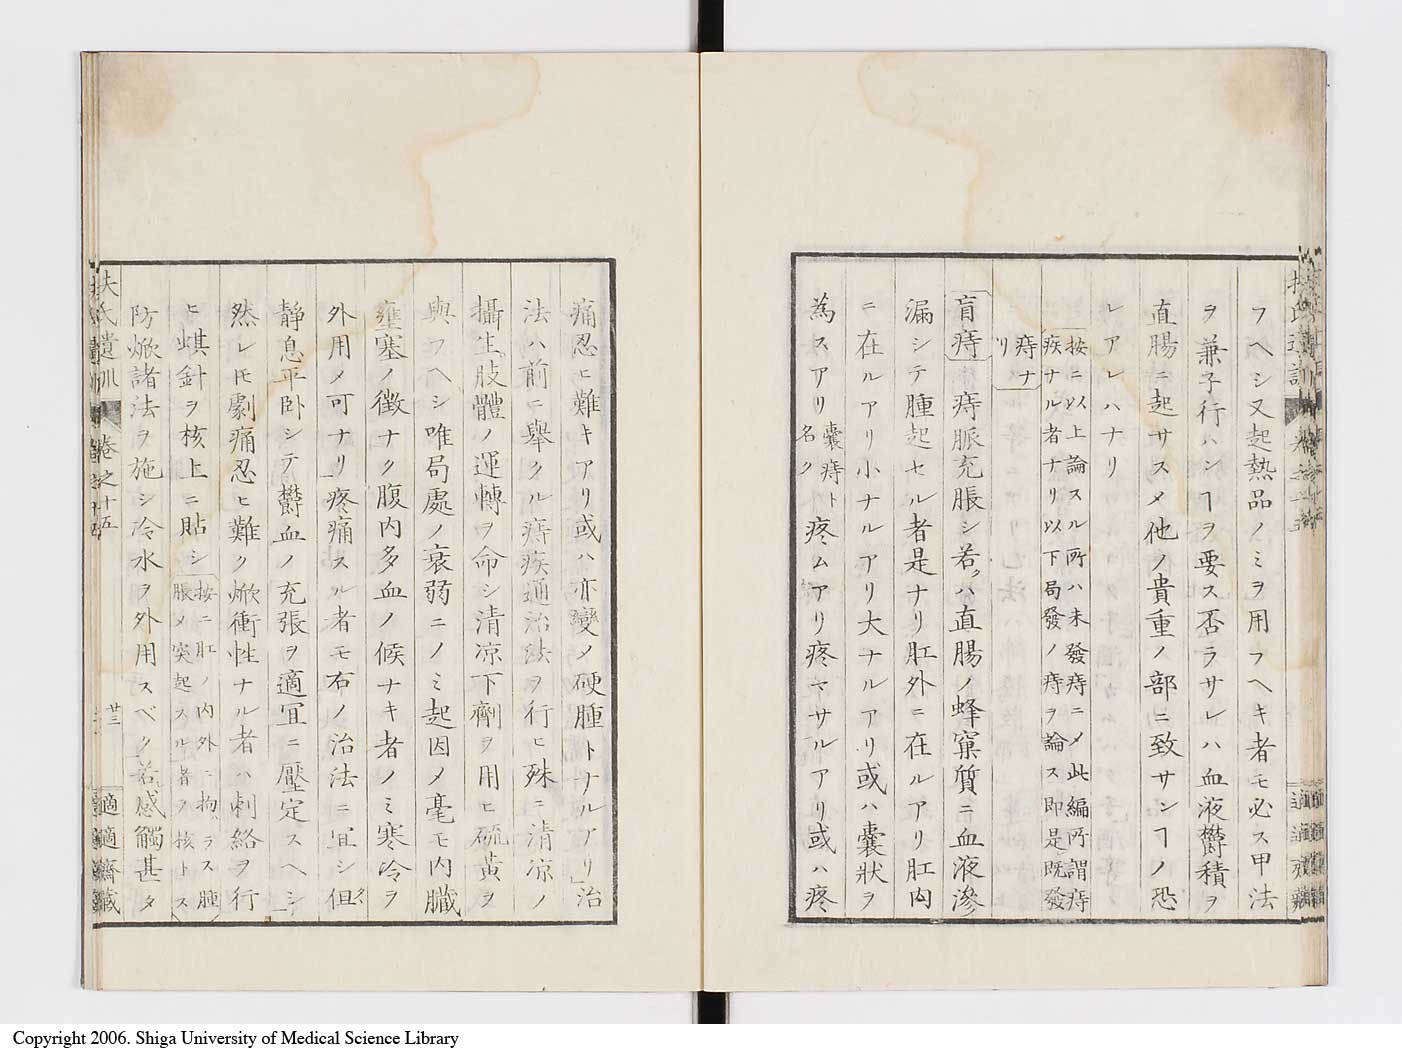 フヘシ又起熱品ノミヲ用フヘキ者モ必ス甲法
ヲ兼子行ハンヿヲ要ス否ラサレハ血液欝積ヲ
直腸ニ起サスメ他ノ貴重ノ部ニ致サンヿノ恐
レアレハナリ
按ニ以上論スル所ハ未發痔ニメ此編所謂痔
疾ナル者ナリ以下局發ノ痔ヲ論ス即是既發
痔ナ
リ
盲痔 痔脈充脹シ若クハ直腸ノ蜂窠質ニ血液滲
漏シテ腫起セル者是ナリ肛外ニ在ルアリ肛内
ニ在ルアリ小ナルアリ大ナルアリ或ハ囊狀ヲ
為スアリ囊痔ト名ク疼ムアリ疼マサルアリ或ハ疼
痛忍ヒ難キアリ或ハ亦變メ硬腫トナルアリ治
法ハ前ニ舉クル痔疾通治法ヲ行ヒ殊ニ清凉ノ
攝生肢體ノ運轉ヲ命シ清凉下劑ヲ用ヒ硫黄ヲ
與フヘシ唯局處ノ衰弱ニノミ起因メ毫モ内臟
壅塞ノ徴ナク腹内多血ノ候ナキ者ノミ寒冷ヲ
外用メ可ナリ疼痛スル者モ右ノ治法ニ宜シ但タ
靜息平卧シテ欝血ノ充張ヲ適冝ニ壓定スヘシ
然レ𪜈劇痛忍ヒ難ク焮衝性ナル者ハ刺絡ヲ行
ヒ蜞針ヲ核上ニ貼シ
按ニ肛ノ内外ニ拘ラス腫
脹メ突起スル者ヲ核トス
防焮諸法ヲ施シ冷水ヲ外用スベク若シ感觸甚タ
扶氏遺訓 卷之十五
廿三
適適齋藏
Copyright 2006. Shiga University of Medical Science Library